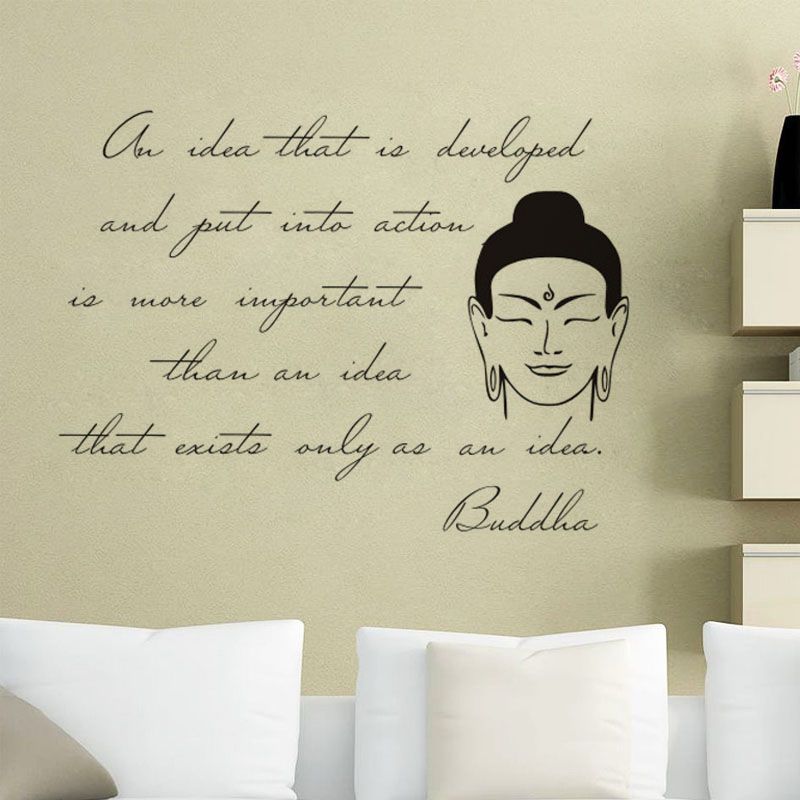 An idea that is developed
and put into action
is more important
than an idea
that exists only as an idea.
Buddha